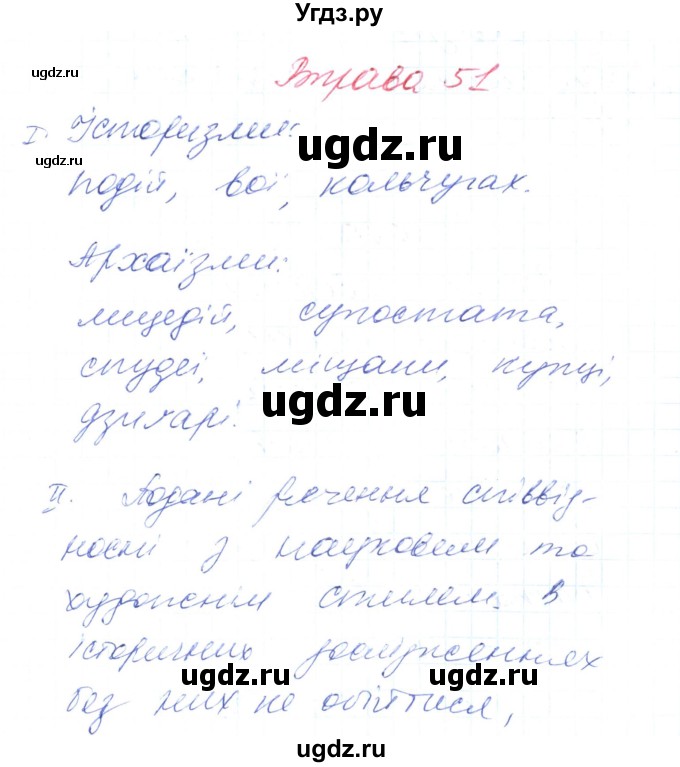 Угдз.ру
ugdz.ru
Вправа 51
I. Історизми:
ugdz.ru
ugdz.ru
подій, вої, кольчугах.
Архаїзми:
лицедій, супостата,
ugdz.ru
спудеї, міщани, купці,
ugdz.ru
дзигарі.
II. Подані речення співвід-
ugdz.ru
носні з науковим та
художнім стилем. В
ugdz.ru
історичних дослідженнях
ugdz.ru
ugdz.ru
без них не обійтися,
ugdz.ru